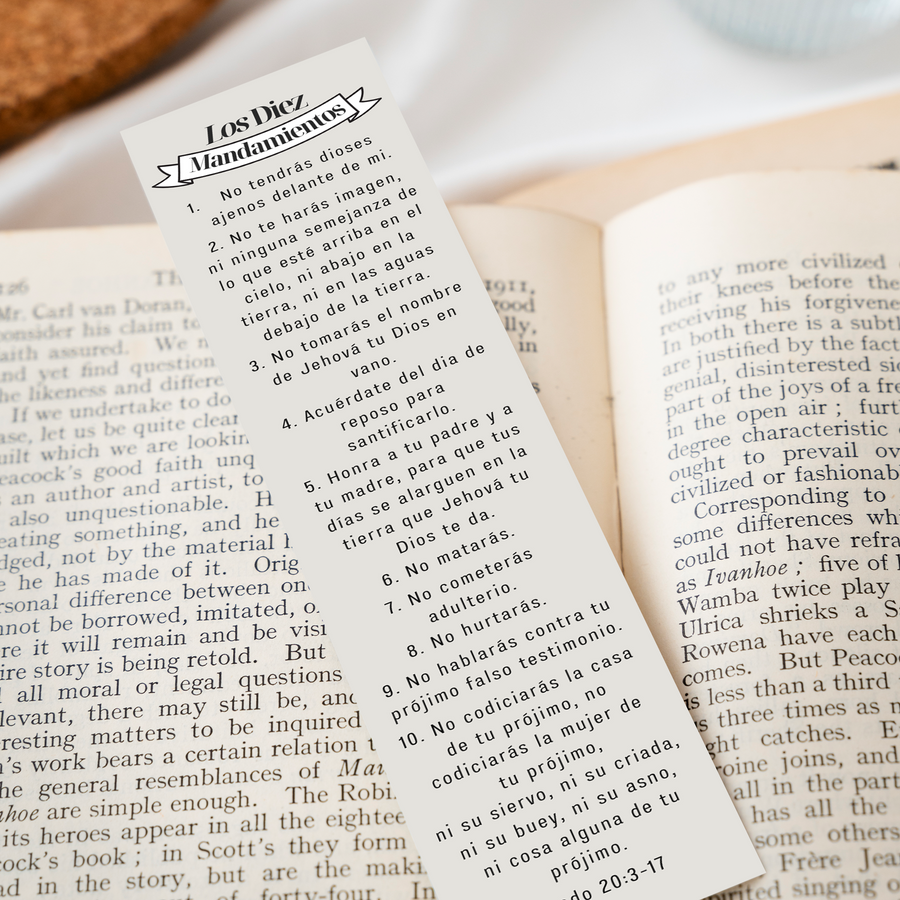 Los Diez
Mandamientos
1. No tendrás dioses
ajenos delante de mi.
2. No te harás imagen,
ni ninguna semejanza de
lo que esté arriba en el
cielo, ni abajo en la
tierra, ni en las aguas
debajo de la tierra.
3. No tomarás el nombre
de Jehová tu Dios en
vano.
4. Acuérdate del dia de
reposo para
santificarlo.
5. Honra a tu padre y a
tu madre, para que tus
días se alarguen en la
tierra que Jehová tu
Dios te da.
6. No matarás.
7. No cometerás
adulterio.
8. No hurtarás.
9. No hablarás contra tu
prójimo falso testimonio.
10. No codiciarás la casa
de tu prójimo, no
codiciarás la mujer de
tu prójimo,
ni su siervo, ni su criada,
ni su buey, ni su asno,
ni cosa alguna de tu
prójimo.
20:3-17
126
Mr. Carl van Doran,
consider his claim to
faith assured. We
and yet find question
the likeness and differe
If we undertake to do
let us be quite clear
built which we are lookin
eacock's good faith unq
an author and artist, to
also unquestionable. H
eating something, and he
dged, not by the material
he has made of it. Orig
rsonal difference between on
not be borrowed, imitated, o
re it will remain and be visi
ire story is being retold. But
all moral or legal questions
levant, there may still be, and
resting matters to be inquired
's work bears a certain relation t
he general resemblances of Mai
hoe are simple enough. The Robi
its heroes appear in all the eightee
cock's book ; in Scott's they form
ad in the story, but are the maki
of forty-four. In
1911,
good
lly,
in
to any more civilized
their knees before the
receiving his forgivene
In both there is a subtl
are justified by the fact
genial, disinterested sid
part of the joys of a fre
in the open air ; furt
degree characteristic
ought to prevail ov
civilized or fashionab
Corresponding to
some differences wh
could not have refra
as Ivanhoe ; five of
Wamba twice play
Ulrica shrieks a S
Rowena have each
comes. But Peaco
is less than a third
three times as m
ght catches. E
roine joins, and
all in the part
has all the
some others
Frère Jea
pirited singing o